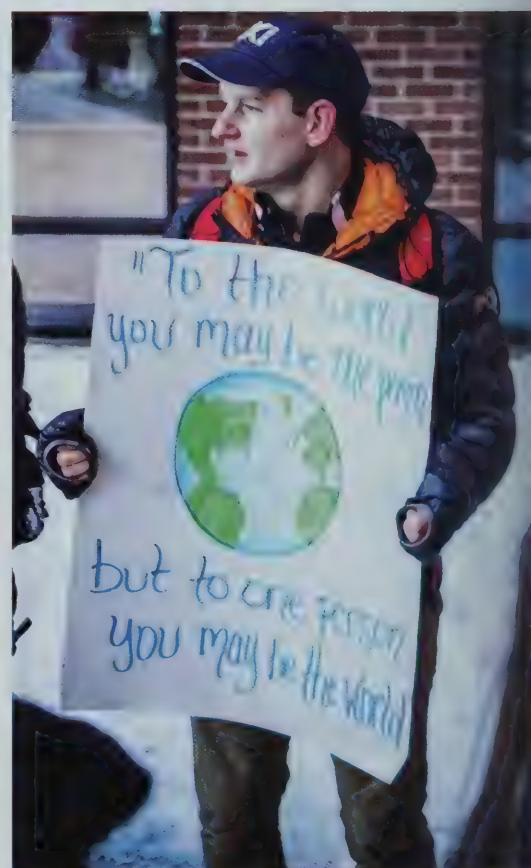 "To the world
you may be one person
but to one person
you may be the world